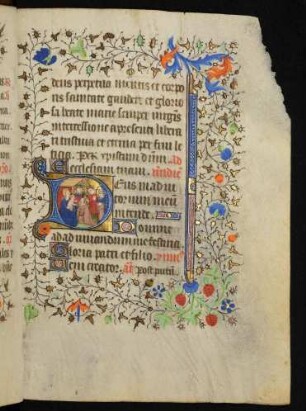 tens perpetua mentis et corpo
ris sanitate gaudere et glorio
sa beate marie semper virginis
intercessione a presenti libera
ri tristicia et eterna per frui le
ticia. Per xpistum dnm. Ad
Deus in adiu
torium meum
intende.
Domine
ad adiuvandum me festina
Gloria patri et filio